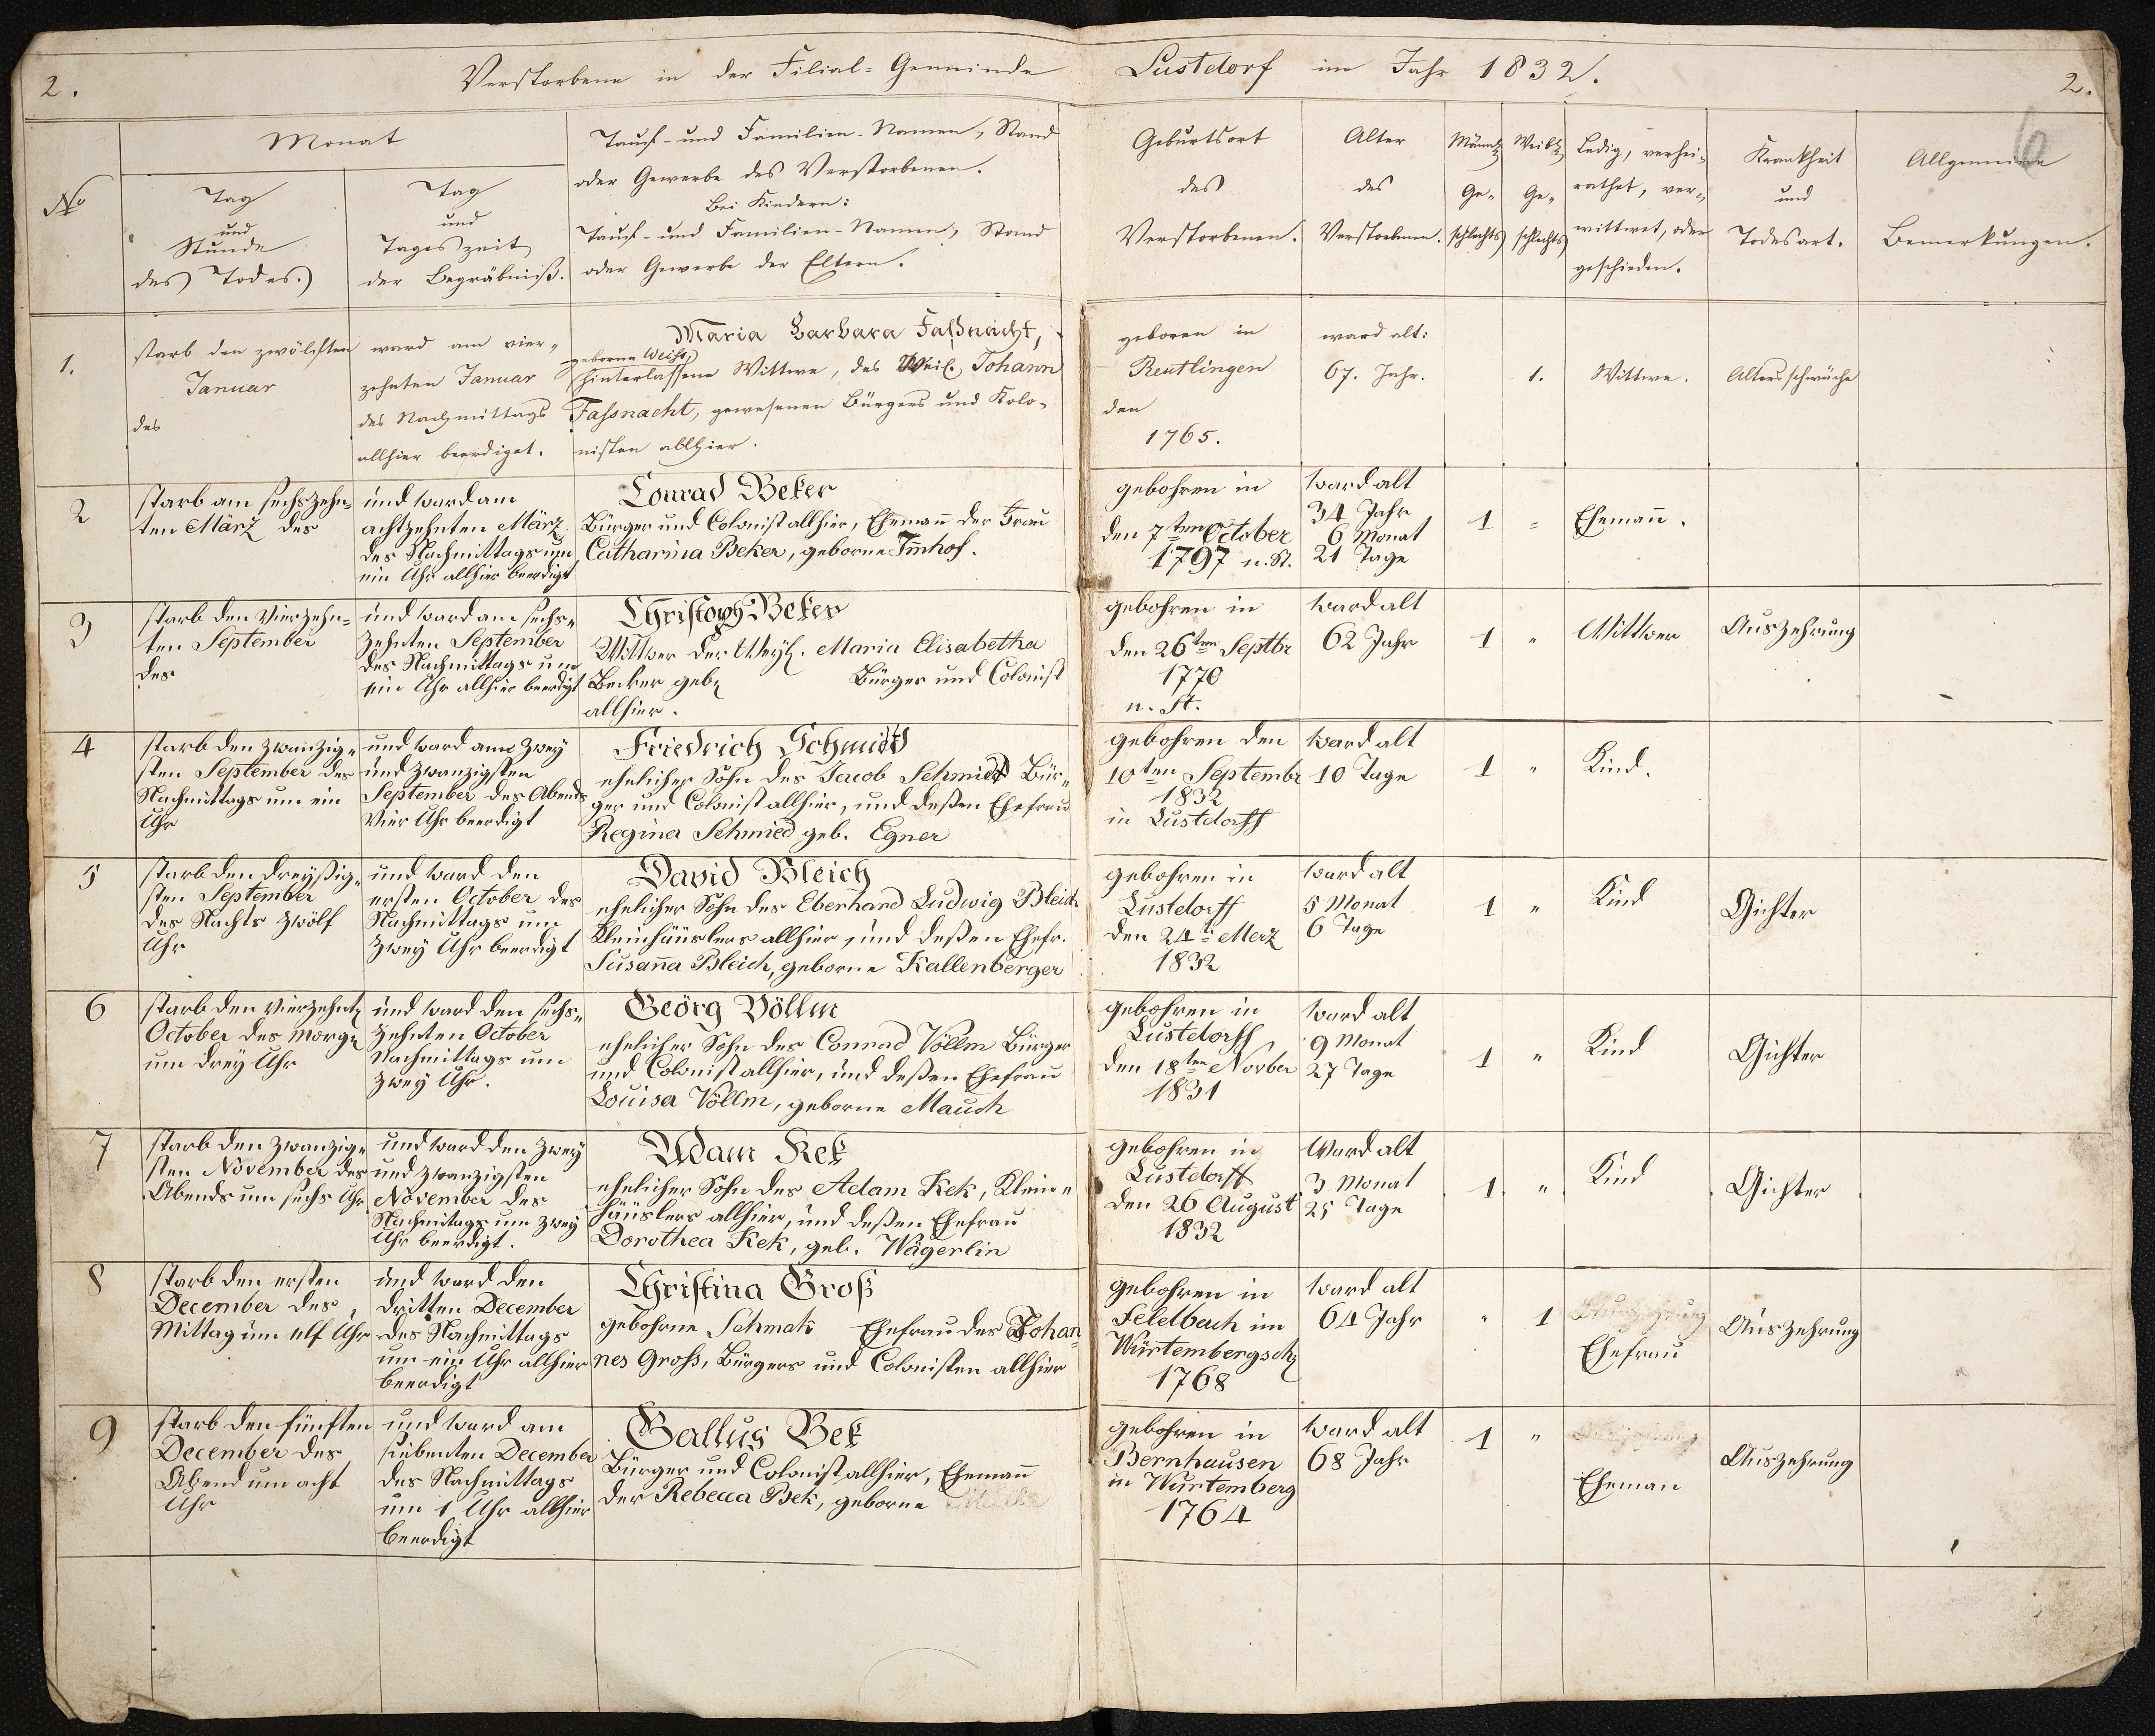 2.
Verstorbene in der Filial-Gemeinde Lustdorf im Jahr 1832.
2.
6
No
Monat
Tag
und
Stunde
des Todes.
Tag
und
Tageszeit
der Begräbniß.
Tauf- und Familien-Namen, Stand
oder Gewerbe des Verstorbenen.
Bei Kindern:
Tauf- und Familien-Namen, Stand
oder Gewerbe der Eltern.
Geburtsort
des
Verstorbenen.
Alter
des
Verstorbenen.
Männl.
Ge-
schlechts
Weibl.
Ge-
schlechts
Ledig, verhei-
rathet, ver-
wittwet, oder
geschieden.
Krankheit
und
Todesart.
Allgemeine
Bemerkungen.
1.
starb den zwölften
Januar
des
ward am vier-
zehnten Januar
des Nachmittags
allhier beerdiget.
Maria Barbara Faßnacht,
geborne
hinterlassene Wittwe, des Weil. Johann
Fassnacht, gewesenen Bürgers und Kolo-
nisten allhier.
geboren in
Reutlingen
den
1765.
ward alt:
67. Jahr.
1.
Wittwe.
Altersschwäche
2
starb am sechszehn-
ten März des
und ward am
achtzehnten März
des Nachmittags um
ein Uhr allhier beerdigt
Conrad Beker
Bürger und Colonist allhier, Ehemañ der Frau
Catharina Beker, geborne Im̃hof.
gebohren in
den 7ten October
1797 n. St.
ward alt
34 Jahr
6 Monat
21 Tage
1 =
Ehemañ.
3
starb den Vierzehn-
ten September
des
und ward am sechs-
zehnten September
des Nachmittags um
ein Uhr allhier beerdigt
Christoph Beker
Wittwer der Weyl. Maria Elisabetha
Becker geb. Bürger und Colonist
allhier.
gebohren in
den 26ten Septbr
1770
n. St.
ward alt
62 Jahr
1 "
Wittwer
Auszehrung
4
starb den zwanzig-
sten September des
Nachmittags um ein
Uhr
und ward am zwey
und zwanzigsten
September des Abends
Vier Uhr beerdigt
Friedrich Schmidt
ehelicher Sohn des Jacob Schmied Bür-
ger und Colonist allhier, und deßen Ehefrau
Regina Schmied geb. Egner
gebohren den
10ten Septembr
1832
in Lustdorff
ward alt
10 Tage
1 "
Kind.
5
starb den dreyßig-
sten September
des Nachts zwölf
Uhr
und ward den
ersten October des
Nachmittags um
zwey Uhr beerdigt
David Bleich
ehelicher Sohn des Eberhard Ludwig Bleich
Kleinhäuslers allhier, und deßen Ehefr.
Susaña Bleich, geborne Kallenberger
gebohren in
Lustdorff
den 24t Merz
1832
ward alt
5 Monat
6 Tage
1 "
Kind
Gichter
6
starb den vierzehnt.
October des Morg.
um drey Uhr
und ward den sechs-
zehnten October
Nachmittags um
zwey Uhr.
Georg Völlm
ehelicher Sohn des Conrad Völlm Bürger
und Colonist allhier, und deßen Ehefrau
Louisa Völlm, geborne Mauch
gebohren in
Lustdorff
den 18ten Novber
1831
ward alt
9 Monat
27 Tage
1 "
Kind
Gichter
7
starb den zwanzig-
sten November des
Abends um sechs Uhr
und ward den zwey
und zwanzigsten
November des
Nachmitags um zwey
Uhr beerdigt.
Adam Kek
ehelicher Sohn des Adam Kek, Klein-
häuslers allhier, und deßen Ehefrau
Dorothea Kek, geb. Wägerlin
gebohren in
Lustdorff
den 26 August
1832
Ward alt
3 Monat
25 Tage
1. "
Kind
Gichter
8
starb den ersten
December des
Mittag um elf Uhr
und ward den
dritten December
des Nachmittags
um ein Uhr allhier
beerdigt
Christina Groß
gebohrne Schmak Ehefrau des Johan-
nes Groß, Bürgers und Colonisten allhier
gebohren in
Feldbach im
Würtembergsch.
1768
ward alt
64 Jahr
" 1
Ehefrau
Auszehrung
9
starb den fünften
December des
Abend um acht
Uhr
und ward am
siebenten December
des Nachmittags
um 1 Uhr allhier
beerdigt
Gallus Bek
Bürger und Colonist allhier, Ehemañ
der Rebecca Bek, geborne
gebohren in
Bernhausen
in Würtemberg
1764
ward alt
68 Jahr
1 "
Eheman
Auszehrung